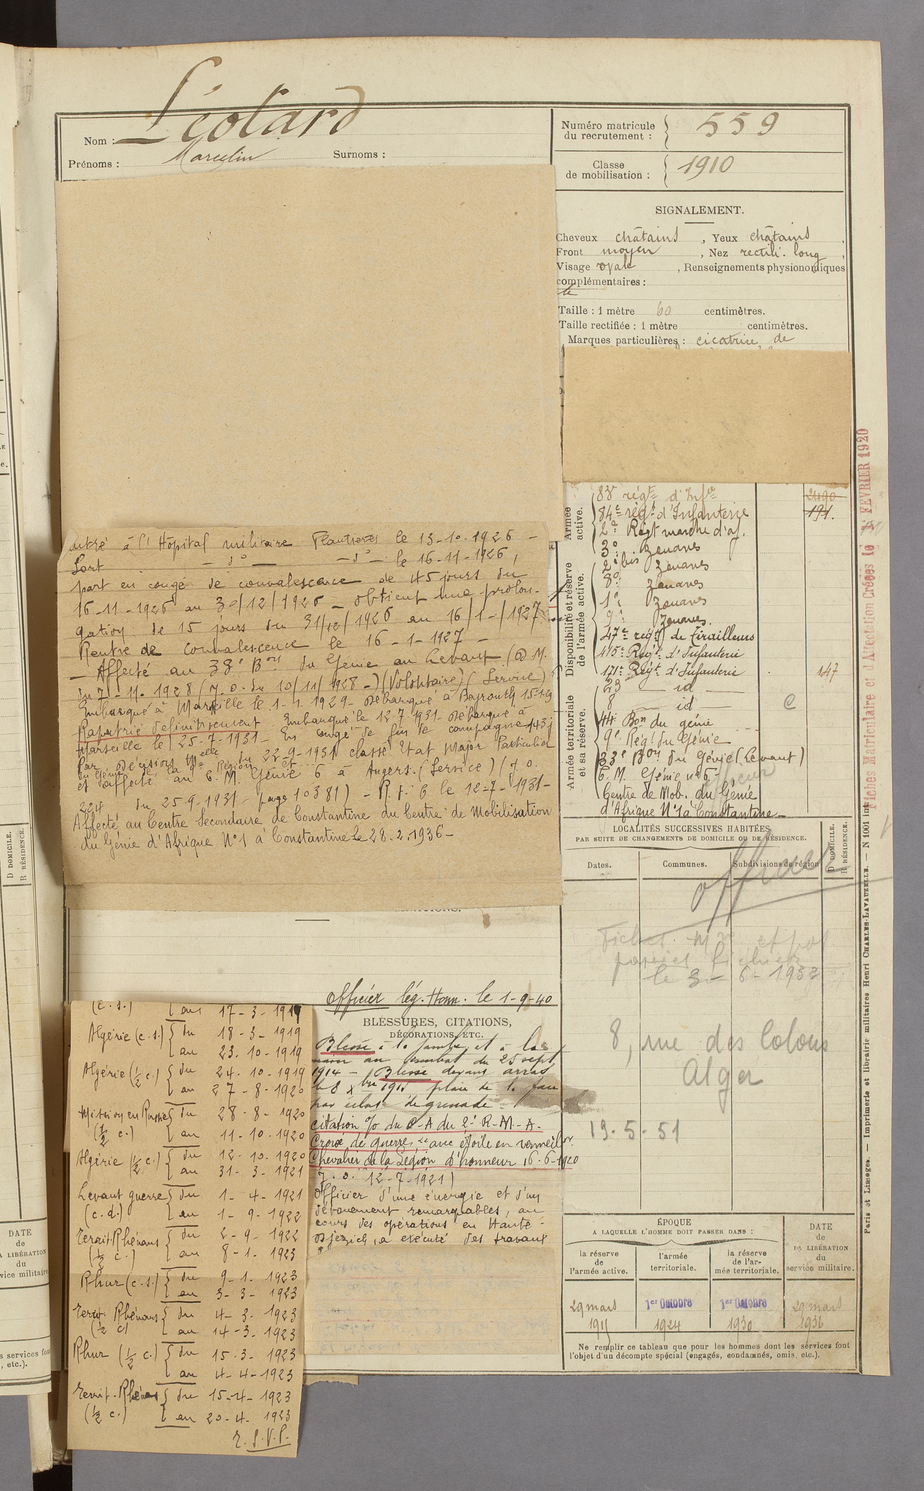 Nom : Léotard
Prénoms : Marcelin Surnoms :
Numéro matricule du recrutement : 559
Classe de mobilisation : 1910
SIGNALEMENT.
Cheveux châtains , Yeux châtains .
Front moyen , Nez rectili. long ,
Visage ovale , Renseignements physionomiques
complémentaires :
Taille : 1 mètre 60 centimètres.
Taille rectifiée : 1 mètre centimètres.
Marques particulières : cicatrice de
entré à l'Hôpital militaire Plantières le 13-10-1926 -
Sort - d° - - d° - le 16-11-1926,
part en congé de convalescence de 45 jours du
16-11-1926 au 30/12/1926 - obtient une prolon-
gation de 15 jours du 31/12/1926 au 16/1-/1927
Rentré de convalescence le 16-1-1927 -
- Affecté au 33e Bon du Génie au Levant (D.M.
du 7-11-1928 (J.O. du 10/11/1928 -) (Volontaire) (Service)
Embarqué à Marseille le 1-1-1929. Débarqué à Beyrouth
Rapatrié définitivement Embarqué le 12-7-1931. Débarqué à
Marseille le 25-7-1931 - En congé de fin de campagne
Par décision du 22-9-1931 classé Etat Major Particulier
du Génie de la Région
et affecté au C.M. Génie 6 à Angers. (Service) (J.O.
224 du 25-9-1931 - page 10381) - R.j. B le 12-7-1931-
Affecté au Centre Secondaire de Constantine du Centre de Mobilisation
du Génie d'Afrique N°1 à Constantine le 28-2-1936-
Armée active.
83e régt d'Infie
84e régt d'Infanterie
2e Régt marche d'af.
3e Zouaves
2e bis Zouaves
3e Zouaves
1e Zouaves
9e Zouaves.
Disponibilité et réserve de l'armée active.
47e régt de tirailleurs
115e Régt d'Infanterie
171e Régt d'Infanterie 147
23 - id -
8 - id - C
Armée territoriale et sa réserve.
44 Bon du génie
9e Régt du Génie
33e Bon du Génie (Levant)
C.M. Génie n°6
Centre de Mob. du Génie
d'Afrique N°1 à Constantine
LOCALITÉS SUCCESSIVES HABITÉES
PAR SUITE DE CHANGEMENTS DE DOMICILE OU DE RÉSIDENCE.
Dates. Communes. Subdivisions de région
D DOMICILE.
R RÉSIDENCE.
officier
le 3-6-1952
8, rue des Colons
Alger
19-5-51
officier lég. Honn. le 1-9-40
BLESSURES, CITATIONS,
DÉCORATIONS, ETC.
Blessé à la jambe et à la
main au combat du 25 sept.
1914 - Blessé devant arras
le 8 bre 1915 plaie de la face
par éclat de grenade
citation % du C.A du 2e R.M.A.
Croix de guerre avec étoile en vermeil
Chevalier de la Légion d'honneur 16-6-1920
J.O. 12-7-1921)
Officier d'une énergie et d'un
dévouement remarquables, au
cours des opérations en Haute-
Djezireh, a exécuté des travaux
(c.s.) au 17-3-1919
Algérie (c.s.) du 18-3-1919
au 23.10-1919
Algérie (½ c.) du 24-10-1919
au 27-8-1920
Mission en Russie du 28-8-1920
(½ c.) au 11-10-1920
Algérie (½ c.) du 12-10-1920
au 31-3-1921
Levant guerre du 1-4-1921
(c.d.) au 1-9-1922
Territ Rhénans du 2-9-1922
(½ c.) au 8-1-1923
Rhur (c.s.) du 9-1-1923
au 3-3-1923
Territ. Rhénans du 4-3-1923
(½ c) au 14-3-1923
Rhur (½ c.) du 15-3-1923
au 4-4-1923
Territ. Rhénans du 15-4-1923
(½ c.) au 20-4-1923
T.S.V.P.
ÉPOQUE
A LAQUELLE L'HOMME DOIT PASSER DANS :
DATE DE LA LIBÉRATION du service militaire.
la réserve de l'armée active.
l'armée territoriale.
la réserve de l'armée territoriale.
29 mars 1er Octobre 1er Octobre 29 mars
1911 1924 1930 1936
Ne remplir ce tableau que pour les hommes dont les services font
l'objet d'un décompte spécial (engagés, condamnés, omis, etc.).
Fiches Matriculaire et d'Affectation Créées le FEVRIER 1920
Paris et Limoges. — Imprimerie et librairie militaires Henri CHARLES-LAVAUZELLE. — N 1001 int
D DOMICILE.
R RÉSIDENCE.
DATE
de
LA LIBÉRATION
du
service militaire